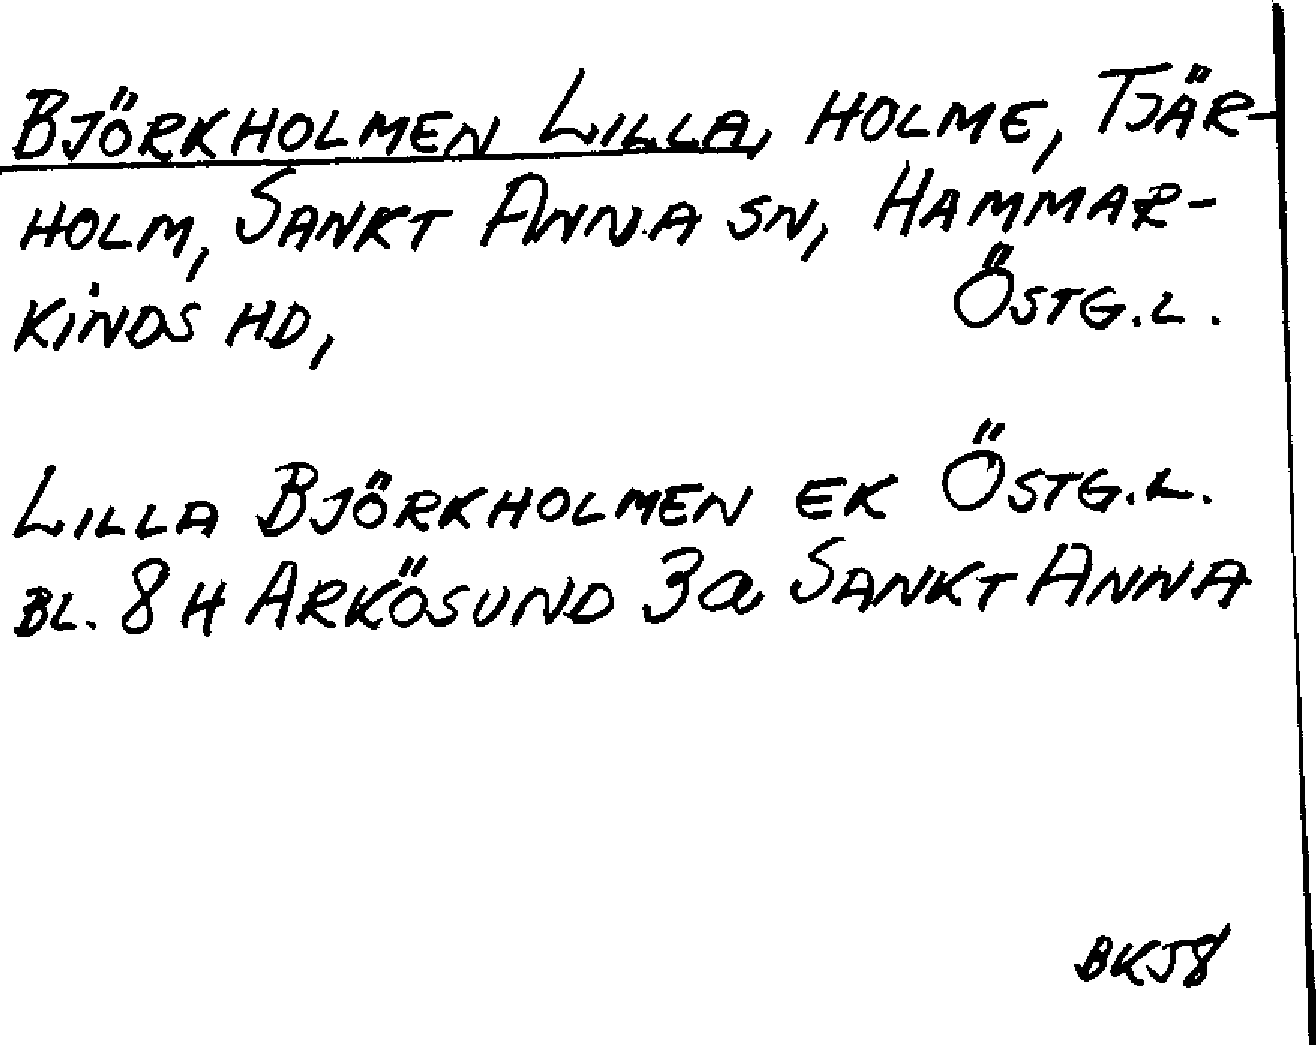 BJÖRKHOLMEN LILLA, HOLME, TJÄR-
HOLM, SANKT ANNA SN, HAMMAR-
KINDS HD, ÖSTG.L.
LILLA BJÖRKHOLMEN EK ÖSTG.L.
BL. 8H ARKÖSUND 3a SANKT ANNA
BKJ8